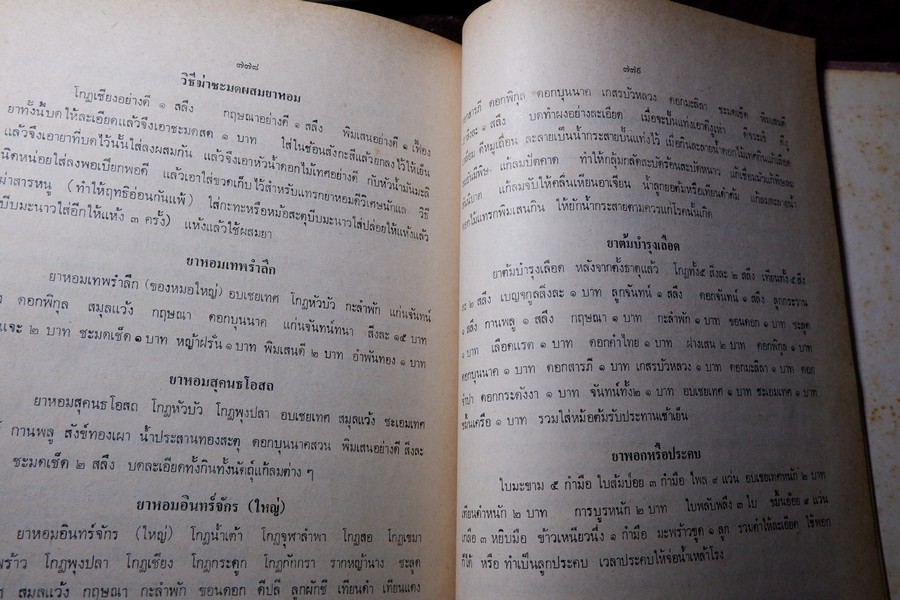 ๗๗๘
วิธีฆ่าชะมดผสมยาหอม
โกฏเชียงอย่างดี ๑ สลึง กฤษณาอย่างดี ๑ สลึง พิมเสนอย่างดี ๑ เฟื้อง
ยาทั้งนี้บดให้ละเอียดแล้วจึงเอาชะมดสด ๑ บาท ใส่ในช้อนสังกะสีแล้วยกลงไว้ให้เย็น
แล้วจึงเอายาที่บดไว้นั้นใส่ลงผสมกัน แล้วจึงเอาหัวน้ำดอกไม้เทศอย่างดี กับหัวน้ำมันมะลิ
นิดหน่อยใส่ลงพอเปียกพอดี แล้วเอาใส่ขวดเก็บไว้สำหรับแทรกยาหอมดีวิเศษนักแล วิธี
ฆ่าสารหนู (ทำให้ฤทธิ์อ่อนกันแพ้) ใส่กะทะหรือหม้อสะตุบีบมะนาวใส่ปล่อยให้แห้งแล้ว
บีบมะนาวใส่อีกให้แห้ง ๓ ครั้ง) แห้งแล้วใช้ผสมยา
ยาหอมเทพรำลึก
ยาหอมเทพรำลึก (ของหมอใหญ่) อบเชยเทศ โกฏหัวบัว กะลำพัก แก่นจันทน์
ดอกพิกุล สมุลแว้ง กฤษณา ดอกบุนนาค แก่นจันทน์ทนา สิ่งละ ๑๕ บาท
๒ บาท ชะมดเช็ด ๑ บาท หญ้าฝรั่น ๑ บาท พิมเสนดี ๒ บาท อำพันทอง ๑ บาท
ยาหอมสุคนธโอสถ
ยาหอมสุคนธโอสถ โกฏหัวบัว โกฏพุงปลา อบเชยเทศ สมุลแว้ง ชะเอมเทศ
กานพลู สังข์ทองเผา น้ำประสานทองสะตุ ดอกบุนนาคสวน พิมเสนอย่างดี สิ่งละ
ชะมดเช็ด ๒ สลึง บดละเอียดทั้งกินทั้งนัตถุ์แก้ลมต่าง ๆ
ยาหอมอินทร์จักร (ใหญ่)
ยาหอมอินทร์จักร (ใหญ่) โกฏน้ำเต้า โกฏจุฬาลำพา โกฏสอ โกฏเขมา
โกฏพุงปลา โกฏเชียง โกฏกระดูก โกฏกักกรา รากหญ้านาง ชะลูด
สมุลแว้ง กฤษณา กะลำพัก ขอนดอก ดีปลี ลูกผักชี เทียนดำ เทียนแดง
๗๗๙
สารภี ดอกพิกุล ดอกบุนนาค เกสรบัวหลวง ดอกมะลิลา ชะมดเช็ด พิมเสนดี
สิ่งละ ๑ สลึง บดทำผงอย่างละเอียด เมื่อจะปั้นแท่งเอาดีงูเห่า ดีจระเข้ ดีงู
ดีหมูเถื่อน ละลายเป็นน้ำกระสายปั้นแท่งไว้ เมื่อกินละลายน้ำดอกไม้เทศกินแก้เลือด
แก้ลมปัตคาด ทำให้กลุ้มกลัดระบัดร้อนสะบัดหนาว แก้เซื่อมมัวแก้พิษลม
แก้ลมจับให้คลื่นเหียนอาเจียน น้ำลูกยอต้มหรือเทียนดำต้ม แก้ลมละลายน้ำ
ดอกไม้แทรกพิมเสนกิน ให้ยักน้ำกระสายตามควรแก่โรคนั้นเกิด
ยาต้มบำรุงเลือด
ยาต้มบำรุงเลือด หลังจากตั้งธาตุแล้ว โกฏทั้ง๕ สิ่งละ ๒ สลึง เทียนทั้ง ๕ สิ่ง
ละ ๒ สลึง เบญจกูลสิ่งละ ๑ บาท ลูกจันทน์ ๑ สลึง ดอกจันทน์ ๑ สลึง ลูกกระวาน
๑ สลึง กานพลู ๑ สลึง กฤษณา ๑ บาท กะลำพัก ๑ บาท ขอนดอก ๑ บาท ชะลูด
๑ บาท เลือดแรด ๑ บาท ดอกคำไทย ๑ บาท ฝางเสน ๒ บาท ดอกพิกุล ๑ บาท
ดอกบุนนาค ๑ บาท ดอกสารภี ๑ บาท เกสรบัวหลวง ๑ บาท ดอกมะลิลา ๑ บาท ดอก
จำปา ดอกกระดังงา ๑ บาท จันทน์ทั้ง๒ ๑ บาท อบเชยเทศ ๑ บาท ชะเอมเทศ ๑ บาท
ขมิ้นเครือ ๑ บาท รวมใส่หม้อต้มรับประทานเช้าเย็น
ยาพอกหรือประคบ
ใบมะขาม ๕ กำมือ ใบส้มป่อย ๓ กำมือ ไพล ๙ แว่น อบเชยเทศหนัก ๒ บาท
เทียนดำหนัก ๒ บาท การบูรหนัก ๒ บาท ใบพลับพลึง ๓ ใบ ขมิ้นอ้อย ๙ แว่น
เกลือ ๓ หยิบมือ ข้าวเหนียวนึ่ง ๑ กำมือ มะพร้าวขูด ๑ ลูก รวมตำให้ละเอียด ใช้พอก
ก็ได้ หรือ ทำเป็นลูกประคบ เวลาประคบให้จ่อน้ำเหล้าโรง